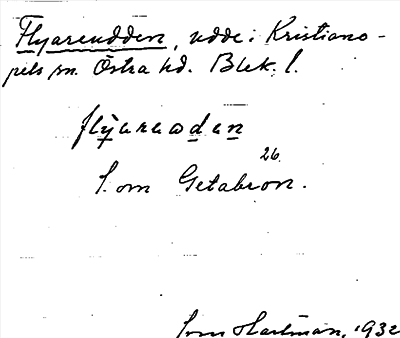 Flyareudden, udde i Kristiano-
pels sn. Östra hd. Blek. l.
flyarauden
S. om Getabron. 26
Sven Hartman, 1932